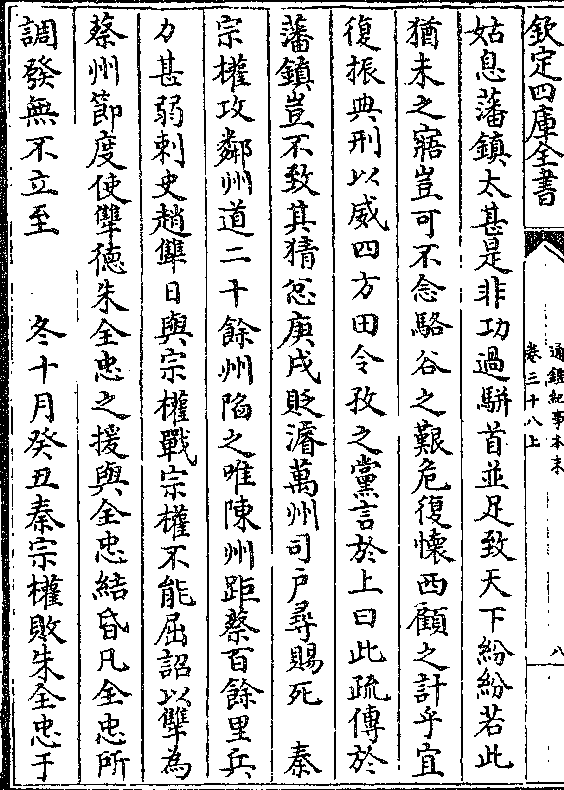 欽定四庫全書
通鑑紀事本末
卷三十八上
八
姑息藩鎮太甚是非功過駢首並足致天下紛紛若此
猶未之寤豈可不念駱谷之艱危復懷西顧之計乎宜
復振典刑以威四方田令孜之黨言於上曰此疏傳於
藩鎮豈不致其猜忿庚戌貶濬萬州司户尋賜死　秦
宗權攻鄰州道二十餘州陷之唯陳州距蔡百餘里兵
力甚弱刺史趙犨日與宗權戰宗權不能屈詔以犨為
蔡州節度使犨徳朱全忠之援與全忠結昏凡全忠所
調發無不立至　冬十月癸丑秦宗權敗朱全忠于